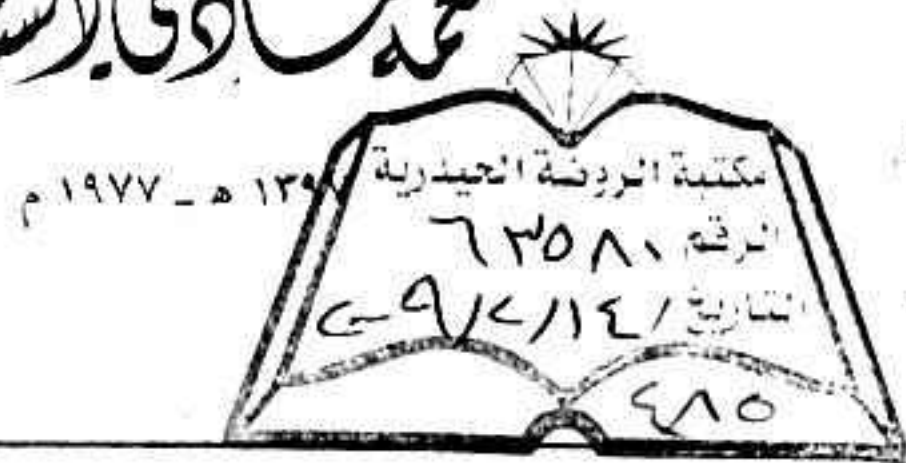 محمد هادي
١٣٩٧ هـ - ١٩٧٧ م
مكتبة الروضة الحيدرية
الرقم ٦٣٥٨١
التاريخ
٤٨٥